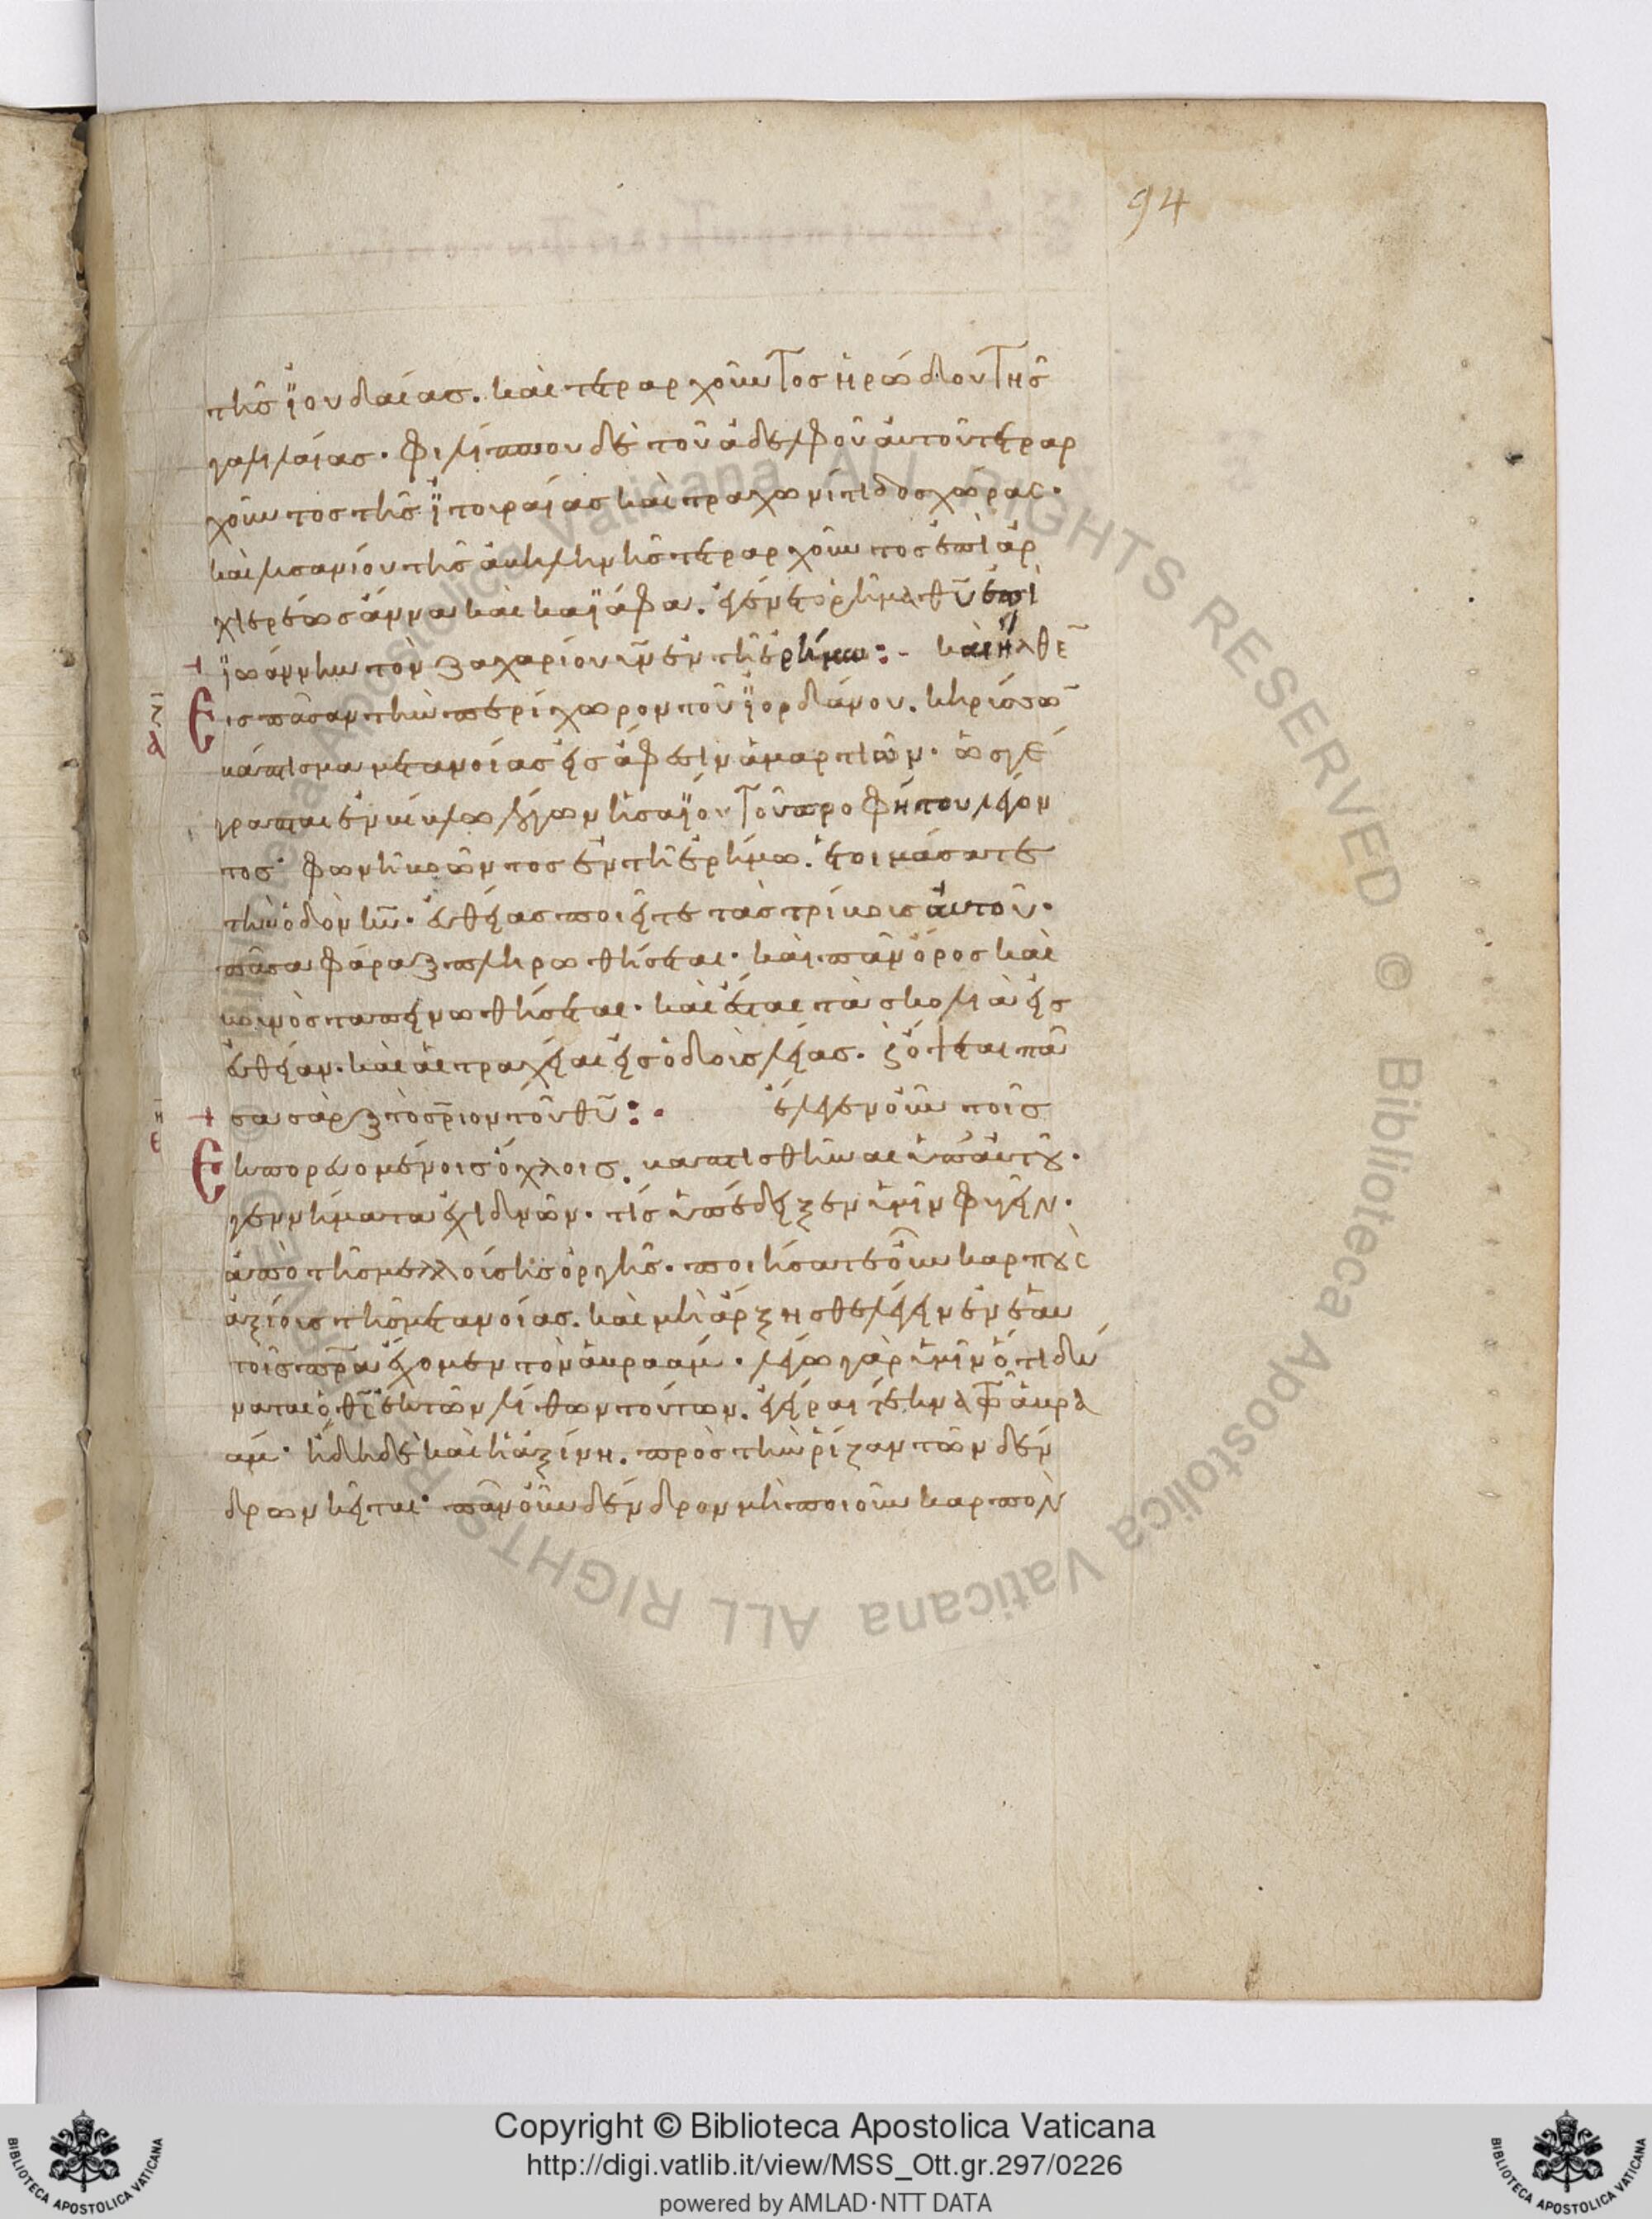 94
τῆς ϊουδαίας. καὶ τετραρχοῦντος ἡρώδου τῆς
γαλιλαίας. φιλίππου δὲ τοῦ ἀδελφοῦ αὐτοῦ τετραρ
χοῦντος τῆς ϊτουραίας καὶ τραχωνίτιδος χώρας.
καὶ λυσανίου τῆς ἀβηληνῆς τετραρχοῦντος ἐπὶ ἀρ
χιερέως ἄννα καὶ καϊάφα. ἐγένετο ῥῆμα θῦ ἐπὶ
ϊωάννην τὸν ζαχαρίου υἱὸν ἐν τῇ ἐρήμω: - καὶ ἦλθε
Εἰς πᾶσαν τὴν περίχωρον τοῦ ϊορδάνου. κηρύσσω
βάπτισμα μετανοίας εἰς ἄφεσιν ἁμαρτιῶν. ὡς γέ
γραπται ἐν βίβλω λόγων ἡσαϊου τοῦ προφήτου λέγον
τος· φωνὴ βοῶντος ἐν τῇ ἐρήμω. ἑτοιμάσατε
τὴν ὁδὸν κῦ. εὐθείας ποιεῖτε τὰς τρίβους αὐτοῦ.
πᾶσα φάραγξ πληρωθήσεται. καὶ πᾶν ὄρος καὶ
βουνὸς ταπεινωθήσεται. καὶ ἔσται τὰ σκολιὰ εἰς
εὐθεῖαν. καὶ αἱ τραχεῖαι εἰς ὁδοὺς λείας. καὶ ὄψεται πᾶ
σα σὰρξ τὸ σριον τοῦ θῦ: . ἔλεγεν οὖν τοῖς
Εκπορευομένοις ὄχλοις. βαπτισθῆναι ὑπ' αὐτοῦ.
γεννήματα ἐχιδνῶν. τίς ὑπέδειξεν ὑμῖν φυγεῖν.
ἀπὸ τῆς μελλούσης ὀργῆς. ποιήσατε οὖν καρποὺς
ἀξίους τῆς μετανοίας. καὶ μὴ ἄρξησθε λέγειν ἐν ἑαυ
τοῖς πρα ἔχομεν τὸν ἀβραάμ. λέγω γὰρ ὑμῖν ὅτι δύ
ναται ὁ θς ἐκ τῶν λίθων τούτων. ἐγεῖραι τέκνα τῶ ἀβρα
άμ. ἤδη δὲ καὶ ἡ ἀξίνη. πρὸς τὴν ῥίζαν τῶν δέν
δρων κεῖται. πᾶν οὖν δένδρον μὴ ποιοῦν καρπὸν
Copyright © Biblioteca Apostolica Vaticana
http://digi.vatlib.it/view/MSS_Ott.gr.297/0226
powered by AMLAD·NTT DATA